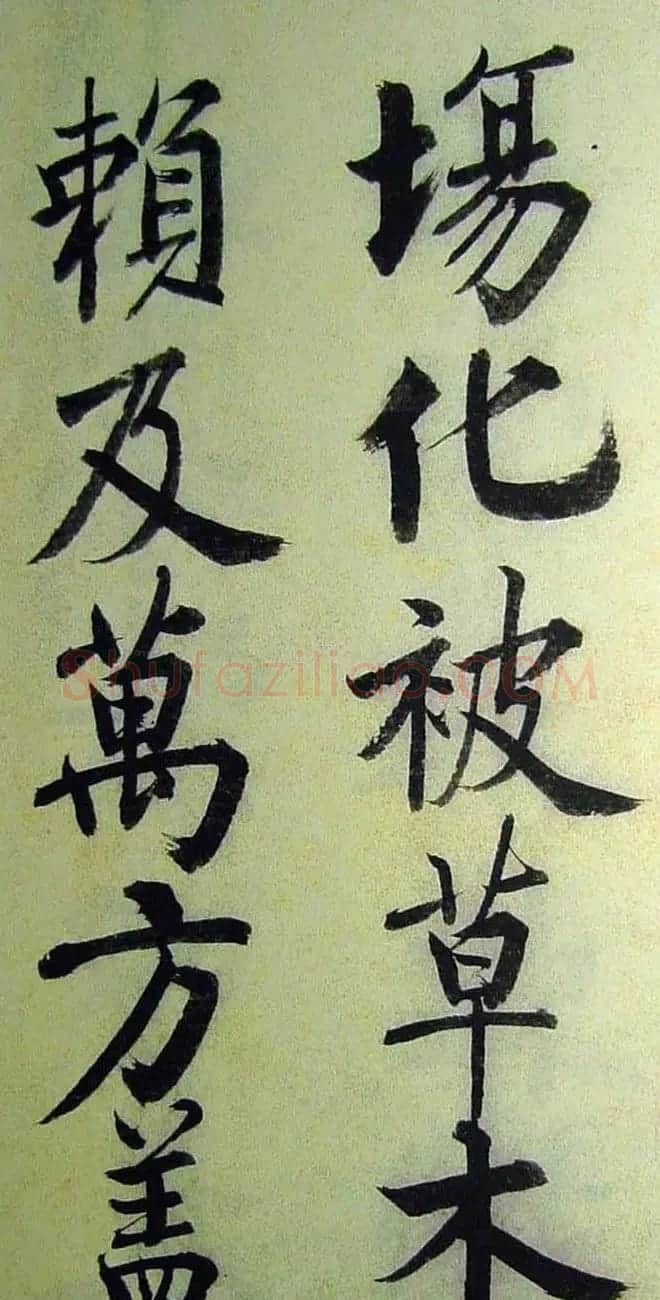 場化被草木
賴及萬方蓋
shufaziliao.COM